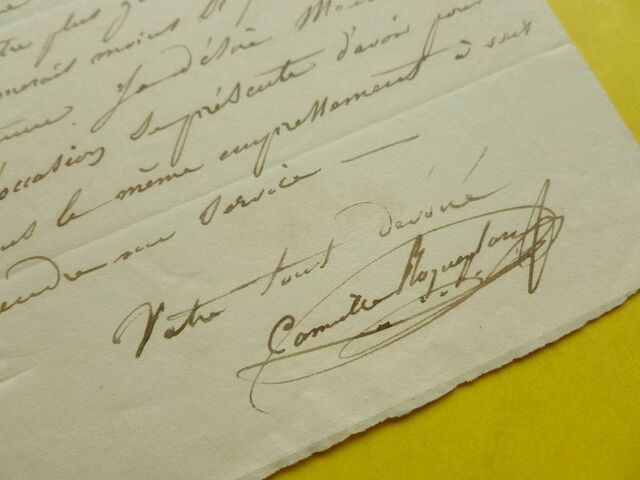 plus
moins
Je désire
l'occasion se présente d'avoir pour
le même empressement à vous
rendre un service —
Votre tout dévoué
Camille Roqueplan